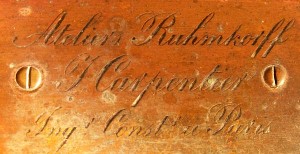 Ateliers Ruhmkorff
J. Carpentier
Ingr Constr à Paris